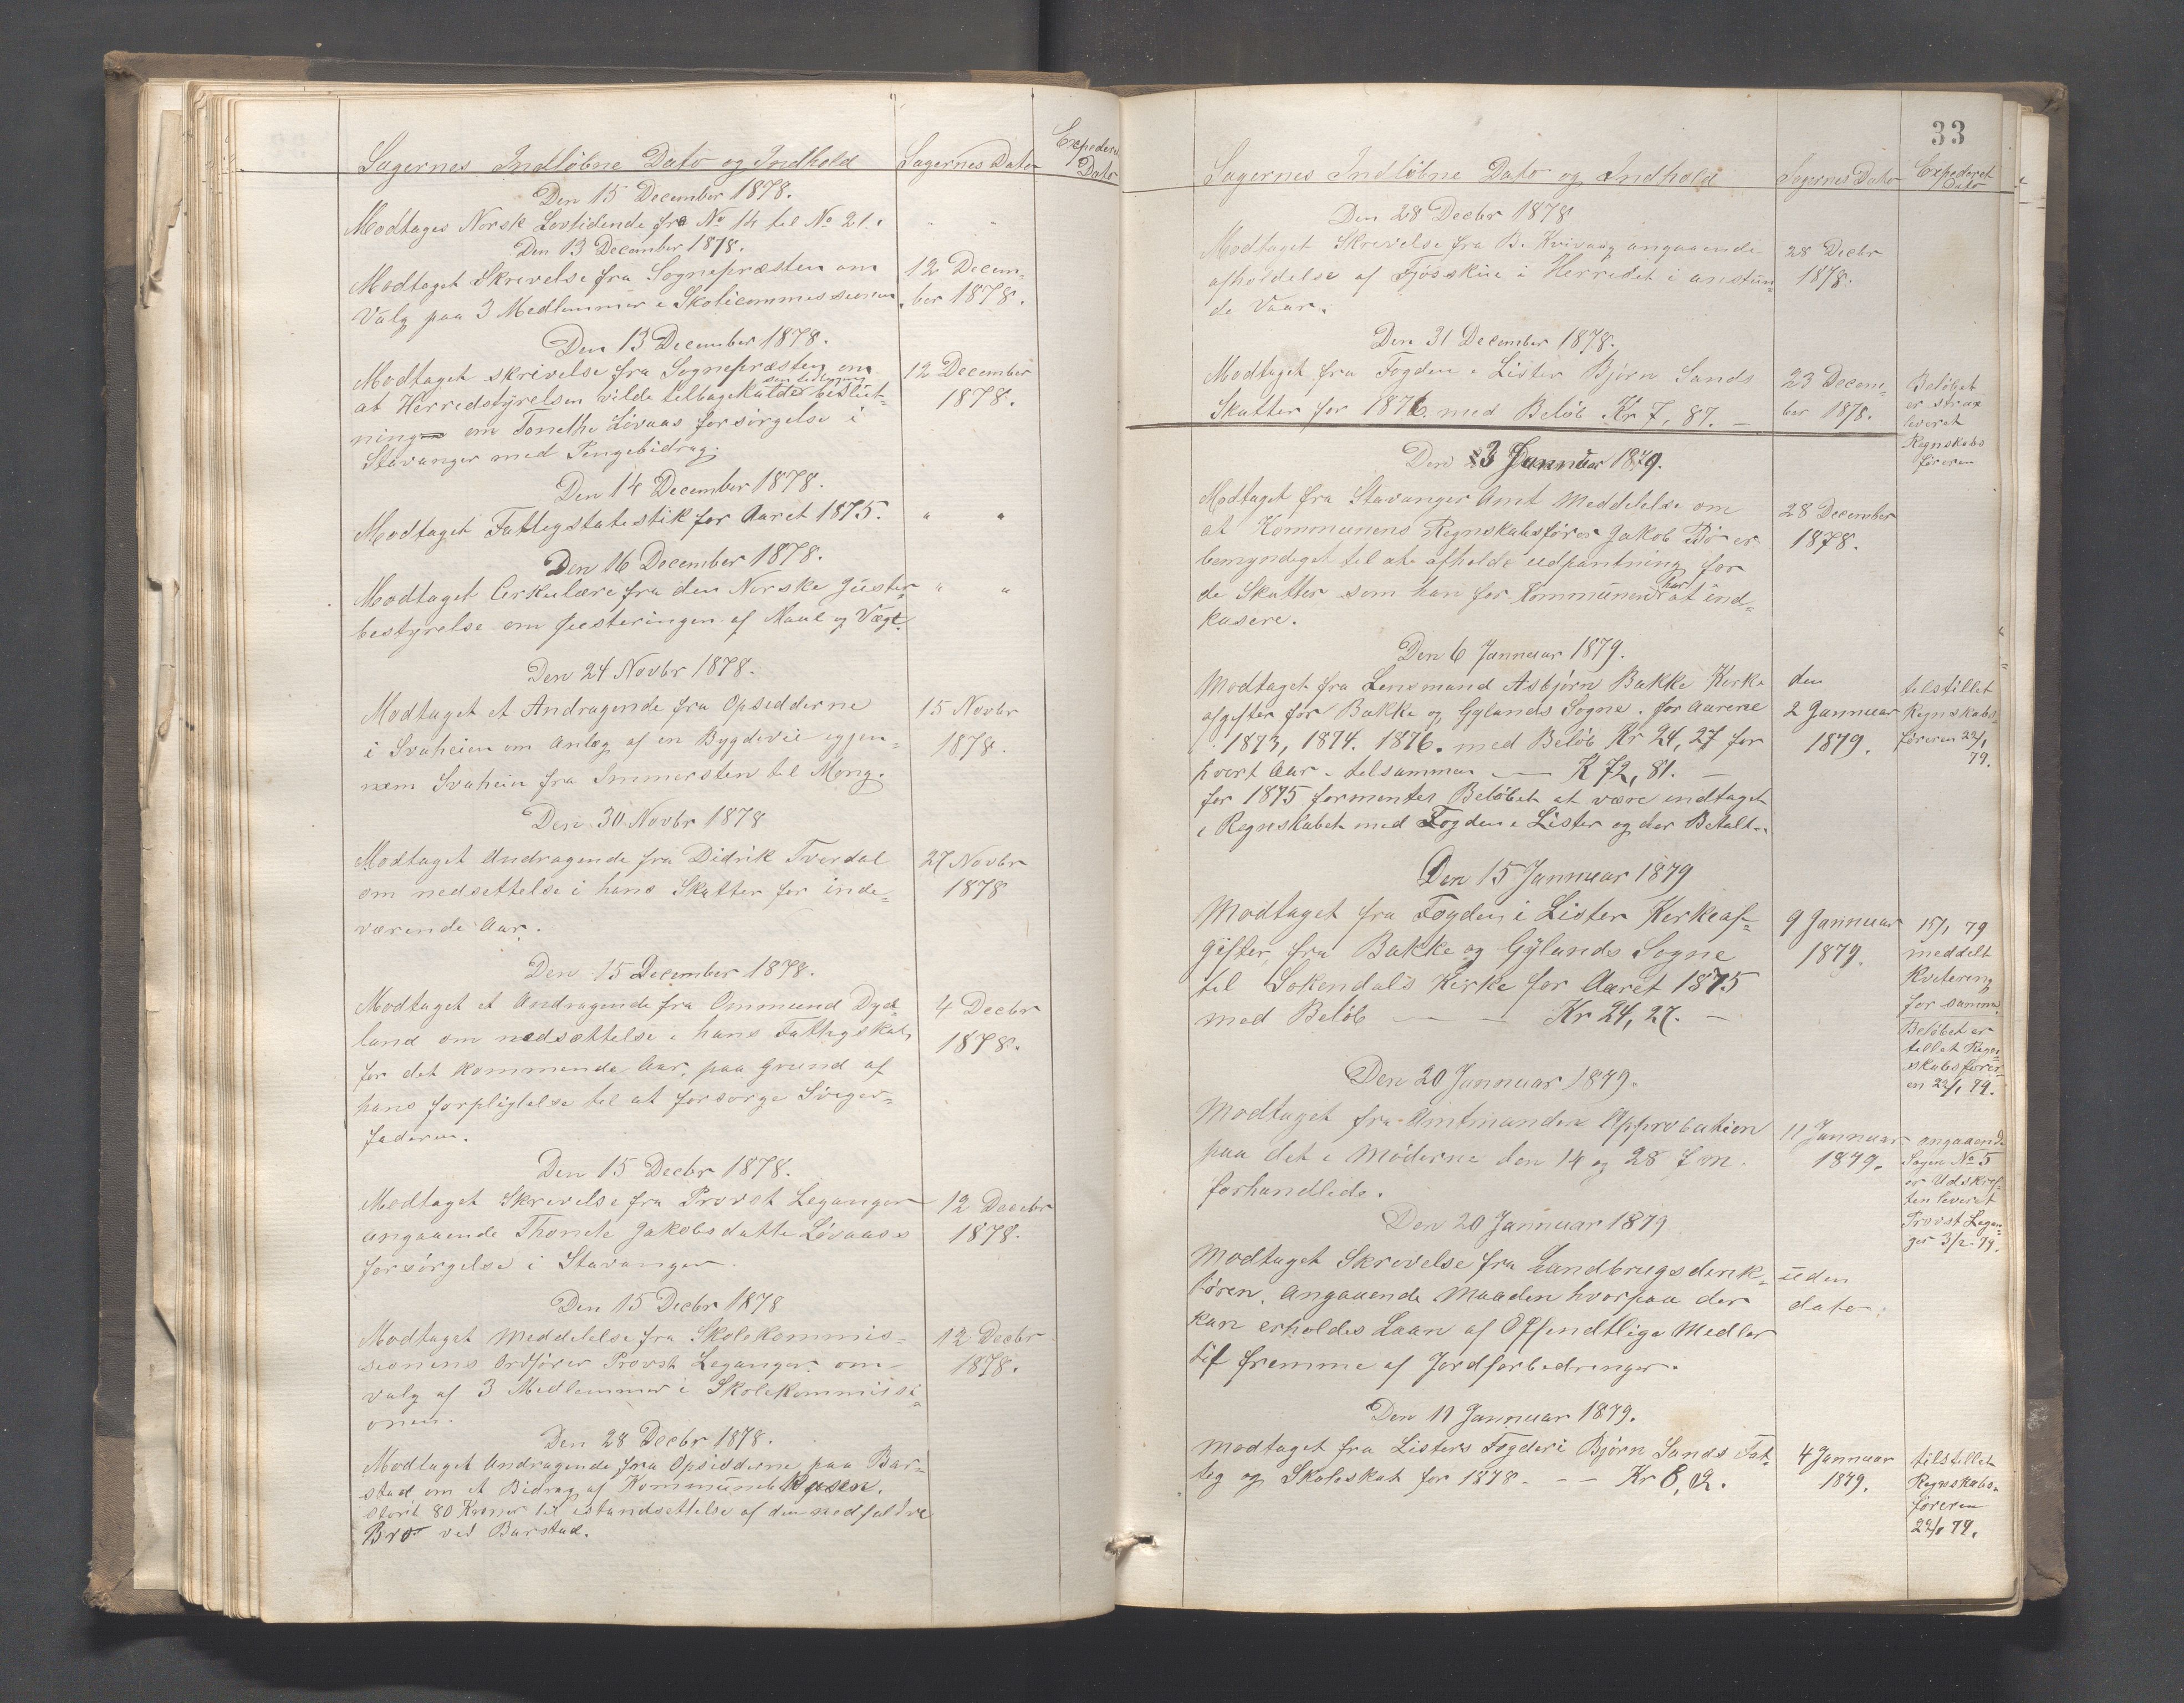 Sagernes Indløbne Dato og Indhold
Sagernes Dato
Expederet
Dato
Den 15 December 1878.
Modtages Norsk Lovtidende fra No 14 til No 21.
" "
Den 13 December 1878.
Modtaget Skrevelse fra Sognepræsten om
12 Decem-
Valg paa 3 Medlemmer i Skolicommissionen
ber 1878.
Den 13 December 1878.
Modtaget skrivelse fra Sognepræsten om
12 December
at Herredstyrelsen vilde tilbagekalde sin beslut-
1878.
ning om Tonethe Løvaas forsørgelse i
Stavanger med Pengebidrag.
Den 14 December 1878.
Modtaget Fattigstatestik for Aaret 1875.
" "
Den 16 December 1878.
Modtaget Cirkulære fra den Norske Juster-
" "
bestyrelse om justeringen af Maal og Vægt.
Den 24 Novbr 1878.
Modtaget et Andragende fra Opsidderne
15 Novbr
i Svaheien om Anlæg af en Bygdeveie igjen-
1878.
nem Svaheien fra Immersten til Mong.
Den 30 Novbr 1878
Modtaget Andragende fra Didrik Tverdal
27 Novbr
om nedsettelse i hans Skatter for inde-
1878
værende Aar.
Den 15 December 1878.
Modtaget et Andragende fra Ommund Dyd-
4 Decbr
land om nedsættelse i hans Fattigskat
1878.
for det kommende Aar, paa Grund af
hans forpligtelse til at forsørge Sviger-
faderen.
Den 15 Decbr 1878.
Modtaget Skrevelse fra Provst Leganger
12 Decebr
angaaende Thonete Jakobsdatte Løvaass
1878.
forsørgelse i Stavanger.
Den 15 Decbr 1878
Modtaget Meddelelse fra Skolekommis-
12 Decbr
seonens Ordfører Provst Leganger om
1878.
valg af 3 Medlemmer i Skolekommissi-
onen.
Den 28 Decbr 1878.
Modtaget Andragende fra Opsidderne paa Bar-
stad om et Bidrag af Kommunekassen.
stort 80 Kroner til istandsættelse af den nedfaldne
Bro ved Barstad.
33
Sagernes Indløbne Dato og Indhold
Sagernes Dato
Expederet
Dato
Den 28 Decbr 1878
Modtaget Skrevelse fra B. Kvivaag angaaende
28 Decbr
afholdelse af Fjøsskue i Herredet i anstun-
1878.
de Vaar.
Den 31 December 1878.
Modtaget fra Fogden i Lister Bjørn Sands
23 Decem-
Beløbet
Skatter for 1876 med Beløb Kr 7,87. —
ber 1878.
er strax
leveret
Regnskabs
føreren
Den 3 Januar 1879.
Modtaget fra Stavanger Amt Meddelelse om
28 December
at Kommunens Regnskabsfører Jakob Bø er
1878.
bemyndiget til at afholde udpantning for
de Skatter som han for Kommunen har at ind-
kasere.
Den 6 Januar 1879.
Modtaget fra Lensmand Asbjørn Bakke Kirke
den
tilstillet
afgifter for Bakke og Gylands Sogne. for Aarene
2 Januar
Regnskabs-
1873, 1874. 1876. med Beløb Kr 24,27 for
1879.
føreren 22/1
79.
hvert Aar - tilsammen — K 72,81. —
for 1875 formentes Beløbet at være indtaget
i Regnskabet med Fogden i Lister og der Betalt.
Den 15 Januar 1879
Modtaget fra Fogden i Lister Kerkeaf-
9 Januar
18/1 79
gifter fra Bakke og Gylands Sogne
1879.
meddelt
til Sokendals Kirke for Aaret 1875
Kvitering
med Beløb — — Kr 24,27. —
for samme
Beløbet er
tillet Regn-
skabsfører-
en 22/1 79.
Den 20 Januar 1879.
Modtaget fra Amtmanden Approbation
11 Januar
angaaende
paa det i Møderne den 14 og 28 f m.
1879.
Sagen No 5
forhandlede.
er Udskrif-
ten leveret
Provst Legan-
ger 3/2-79.
Den 20 Januar 1879
Modtaget Skrevelse fra Landbrugsderek-
uden
tøren. Angaaende Maaden hvorpaa der
dato.
kan erholdes Laan af Offentlige Medler
til fremme af Jordforbedringer.
Den 11 Januar 1879.
Modtaget fra Listers Fogderi Bjørn Sands Fat-
4 Januar
tilstillet
tig og Skoleskat for 1878 - — Kr 8,02.
1879.
Regnskabs-
føreren
22/1 79.